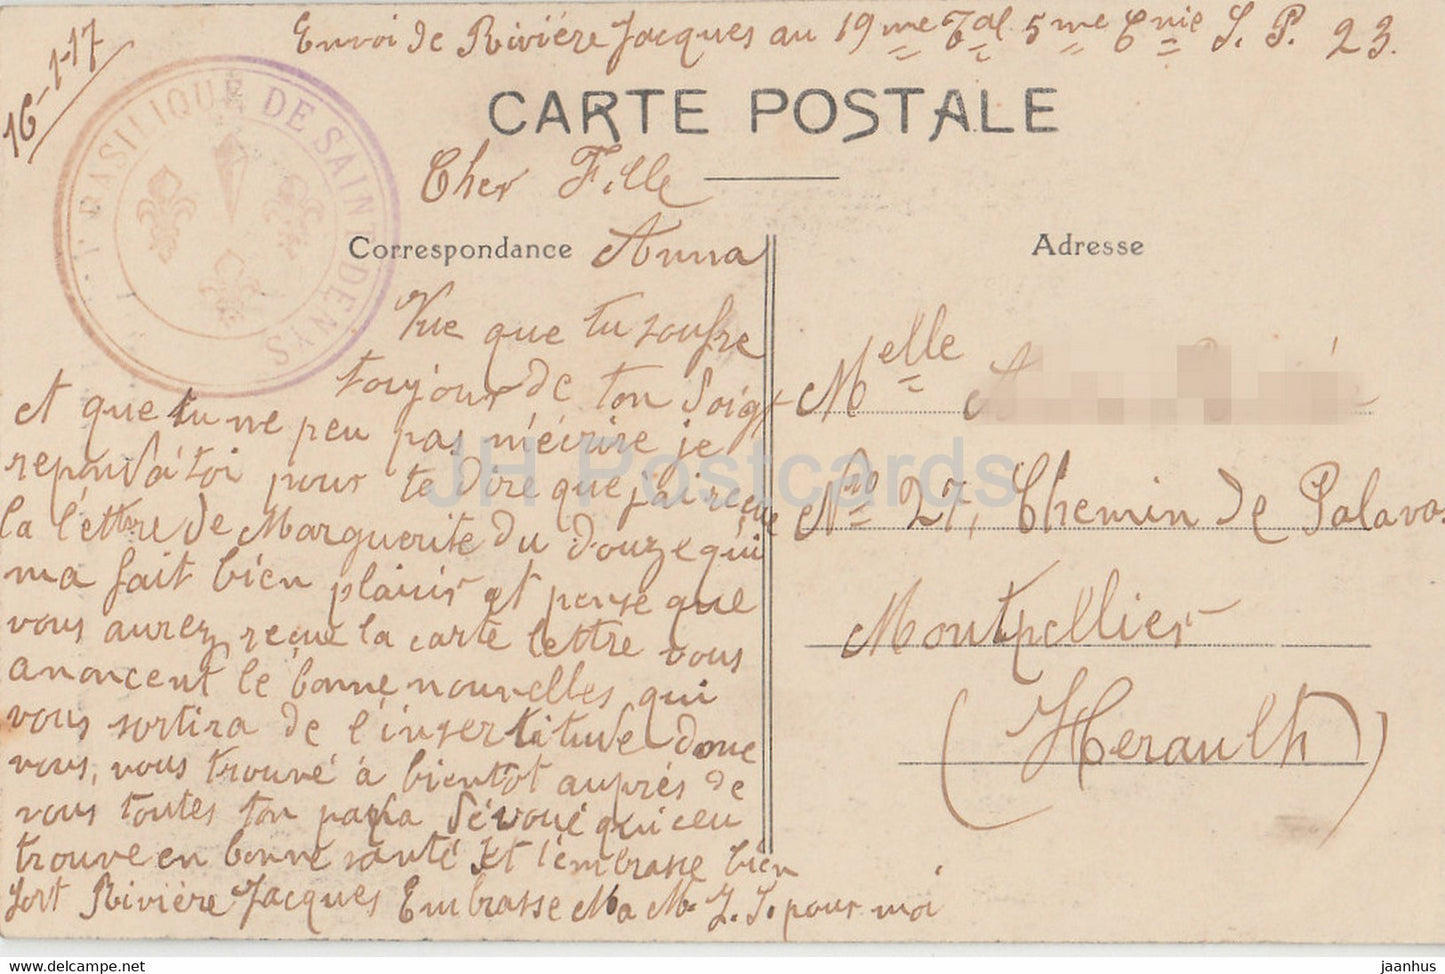 16-1-17
Envoi de Riviére Jacques au 19me Tal. 5me Cnie S. P. 23.
BASILIQUE DE SAINT DENYS
CARTE POSTALE
Cher Fille
Correspondance Anna
Vue que tu soufre
toujour de ton Doigt
et que tu ne peu pas m'écrire je
repond à toi pour te dire que j'ai reçue
la lettre de Marguerite du douze qui
ma fait bien plaisir et pense que
vous aurez reçue la carte lettre vous
anoncent le bonne nouvelles qui
vous sortira de l'insertitude donc
vous, vous trouvé à bientot auprés de
vous toutes ton papa Dévoué qui ceu
trouve en bonne santé Et t'embrasse bien
fort Riviére Jacques Embrasse Ma M. J. J. pour moi
Adresse
Melle
No 27, Chemin de Palava
Montpellier
(Herault)
JH Postcards
jaanhus-postcards.com
jaanhus